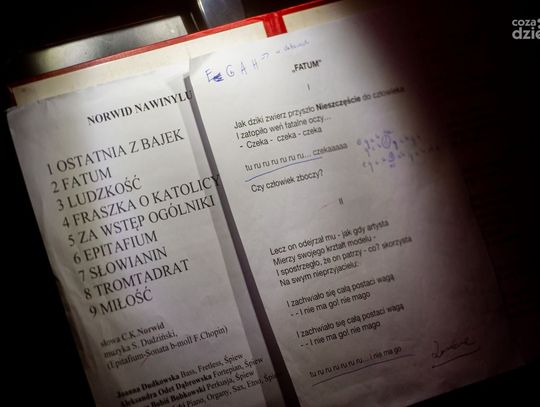 coza
dzie
NORWID NAWINYLU
1 OSTATNIA Z BAJEK
2 FATUM
3 LUDZKOŚĆ
4 FRASZKA O KATOLICY
5 ZA WSTĘP OGÓLNIKI
6 EPITAFIUM
7 SŁOWIANIN
8 TROMTADRAT
9 MIŁOŚĆ
słowa C.K.Norwid
muzyka S. Dudziński,
(Epitafium-Sonata b-moll F.Chopin)
Joanna Dudkowska Bass, Fretless, Śpiew
Aleksandra Odet Dąbrowska Fortepian, Śpiew
Bobii Bobkowski Perkusja, Śpiew
Piano, Organy, Sax, Etno, Śpiew
E G A H
„FATUM”
I
Jak dziki zwierz przyszło Nieszczęście do człowieka
I zatopiło weń fatalne oczy...
- Czeka - czeka - czeka
tu ru ru ru ru ru ru... czekaaaaa
Czy człowiek zboczy?
II
Lecz on odejrzał mu - jak gdy artysta
Mierzy swojego kształt modelu -
I spostrzegło, że on patrzy - co? skorzysta
Na swym nieprzyjacielu:
I zachwiało się całą postaci wagą
- - I nie ma go! nie mago
I zachwiało się całą postaci wagą
- - I nie ma go! nie mago
tu ru ru ru ru ru ru... i nie ma go